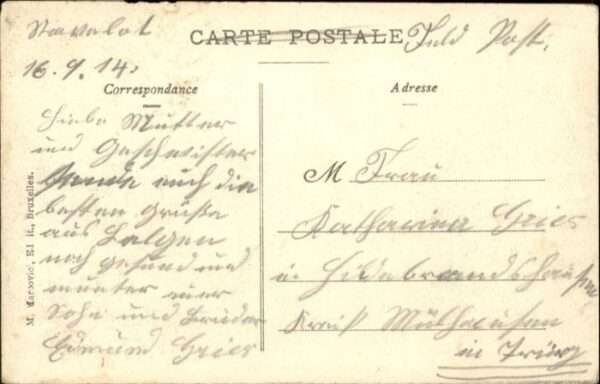 Stavelot
CARTE POSTALE
Feld Post.
16.9.14.
Correspondance
Adresse
Liebe Mutter
und Geschwister
Sende euch die
besten Grüße
aus Belgen
noch gesund und
munter euer
Sohn und Bruder
Edmund Gries
M Frau
Katharina Gries
in Hildebrandshausen
Kreis Mülhausen
in Türg
M. Marcovici, Edit., Bruxelles.